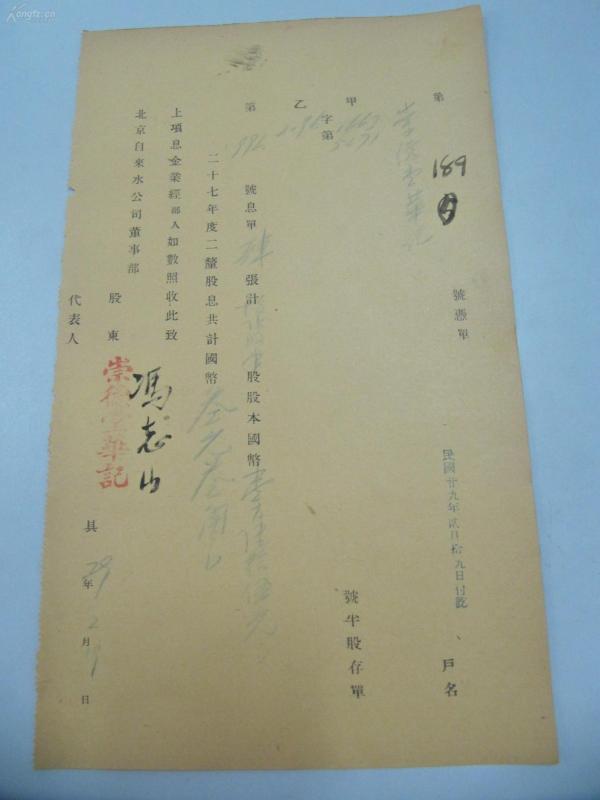 kongfz.cn
第 189 號憑單 戶名
崇德堂華記
民國廿九年貳月拾九日付訖
甲
字第
乙
號半股存單
第 992 號息單 張計 股股本國幣壹百陸拾伍元
二十七年度二釐股息共計國幣叁元叁角
上項息金業經部人如數照收此致
北京自來水公司董事部
股東
代表人
崇德堂華記
馮志山
具
29年2月 日